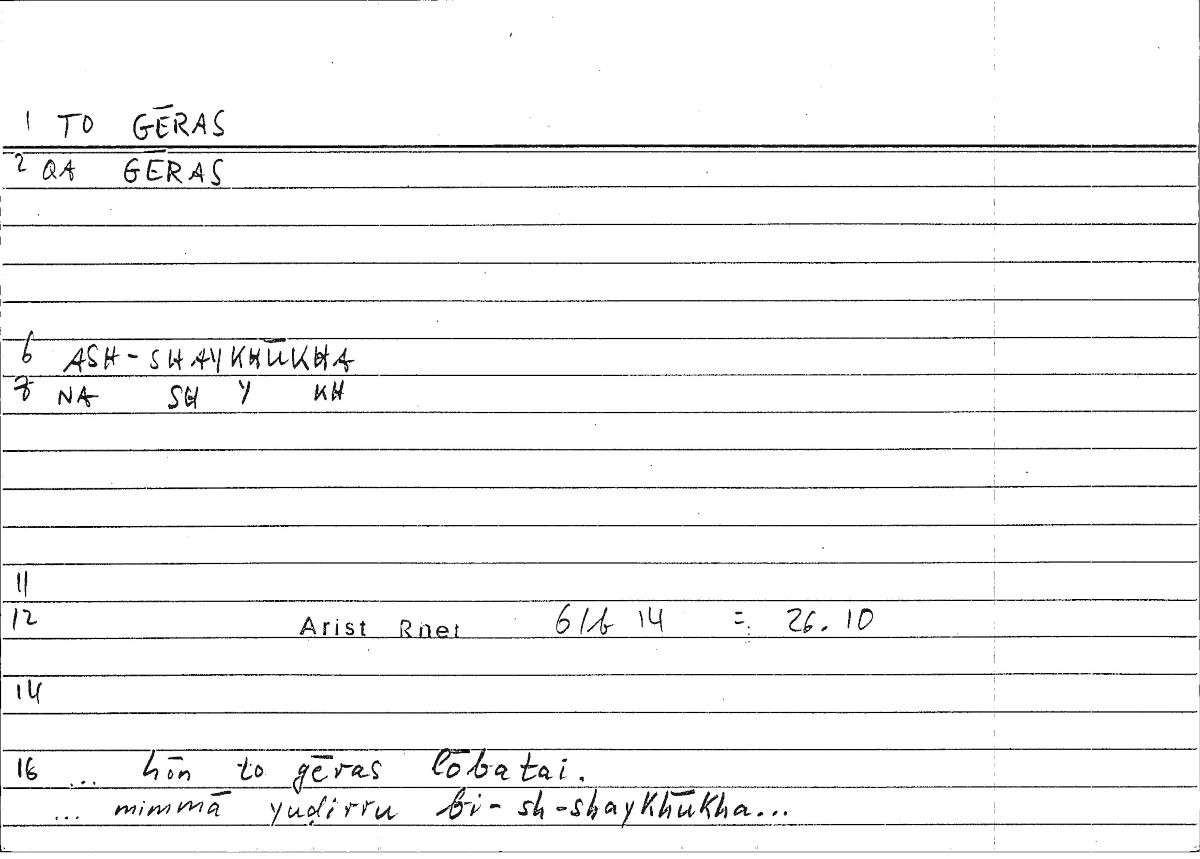 1 TO GĒRAS
2 QA GĒRAS
6 ASH-SHAYKHŪKHA
7 NA SH Y KH
11
12 Arist Rhet 61b 14 = 26.10
14
16 ... hōn to gēras lōbatai.
... mimmā yuḍirru bi-sh-shaykhūkha...